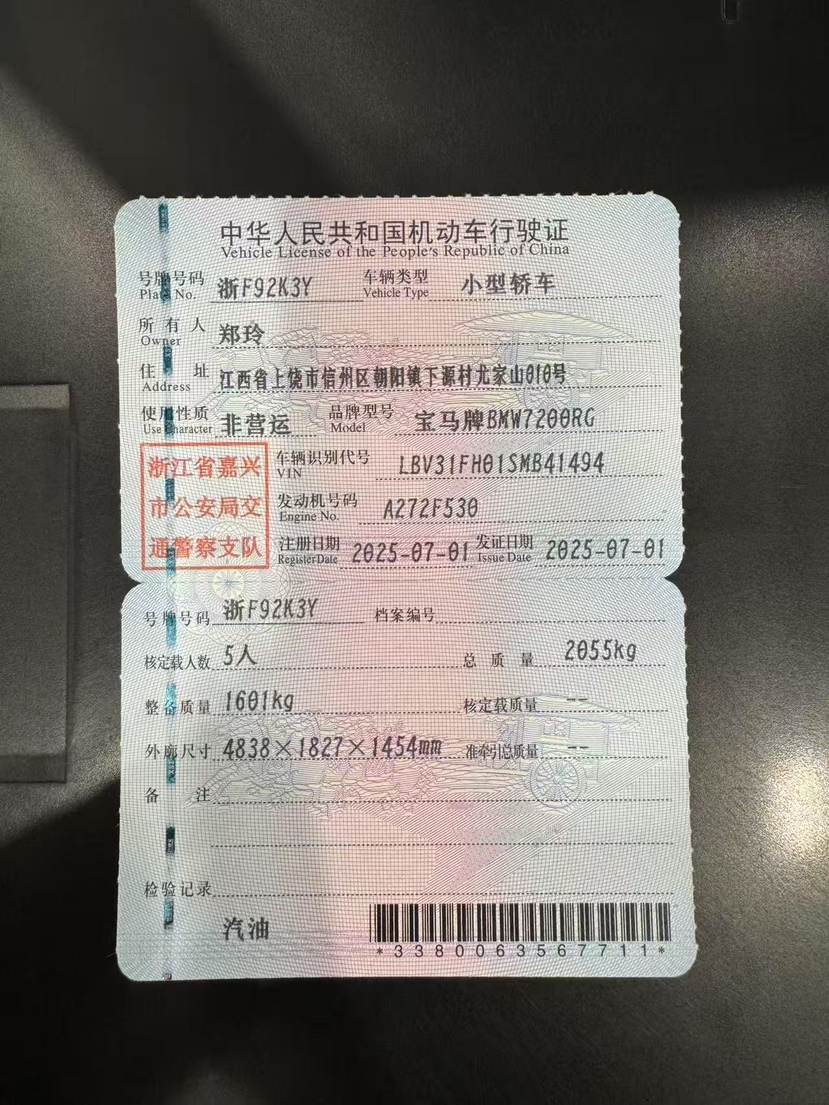 中华人民共和国机动车行驶证
Vehicle License of the People's Republic of China
号牌号码 浙F92K3Y 车辆类型 小型轿车
Plate No. Vehicle Type
所有人 郑玲
Owner
住址 江西省上饶市信州区朝阳镇下源村尤家山010号
Address
使用性质 非营运 品牌型号 宝马牌BMW7200RG
Use Character Model
浙江省嘉兴
市公安局交
通警察支队
车辆识别代号 LBV31FH01SMB41494
VIN
发动机号码 A272F530
Engine No.
注册日期 2025-07-01 发证日期 2025-07-01
Register Date Issue Date
号牌号码 浙F92K3Y 档案编号
核定载人数 5人 总质量 2055kg
整备质量 1601kg 核定载质量 --
外廓尺寸 4838×1827×1454mm 准牵引总质量 --
备注
检验记录
汽油
*3380063567711*